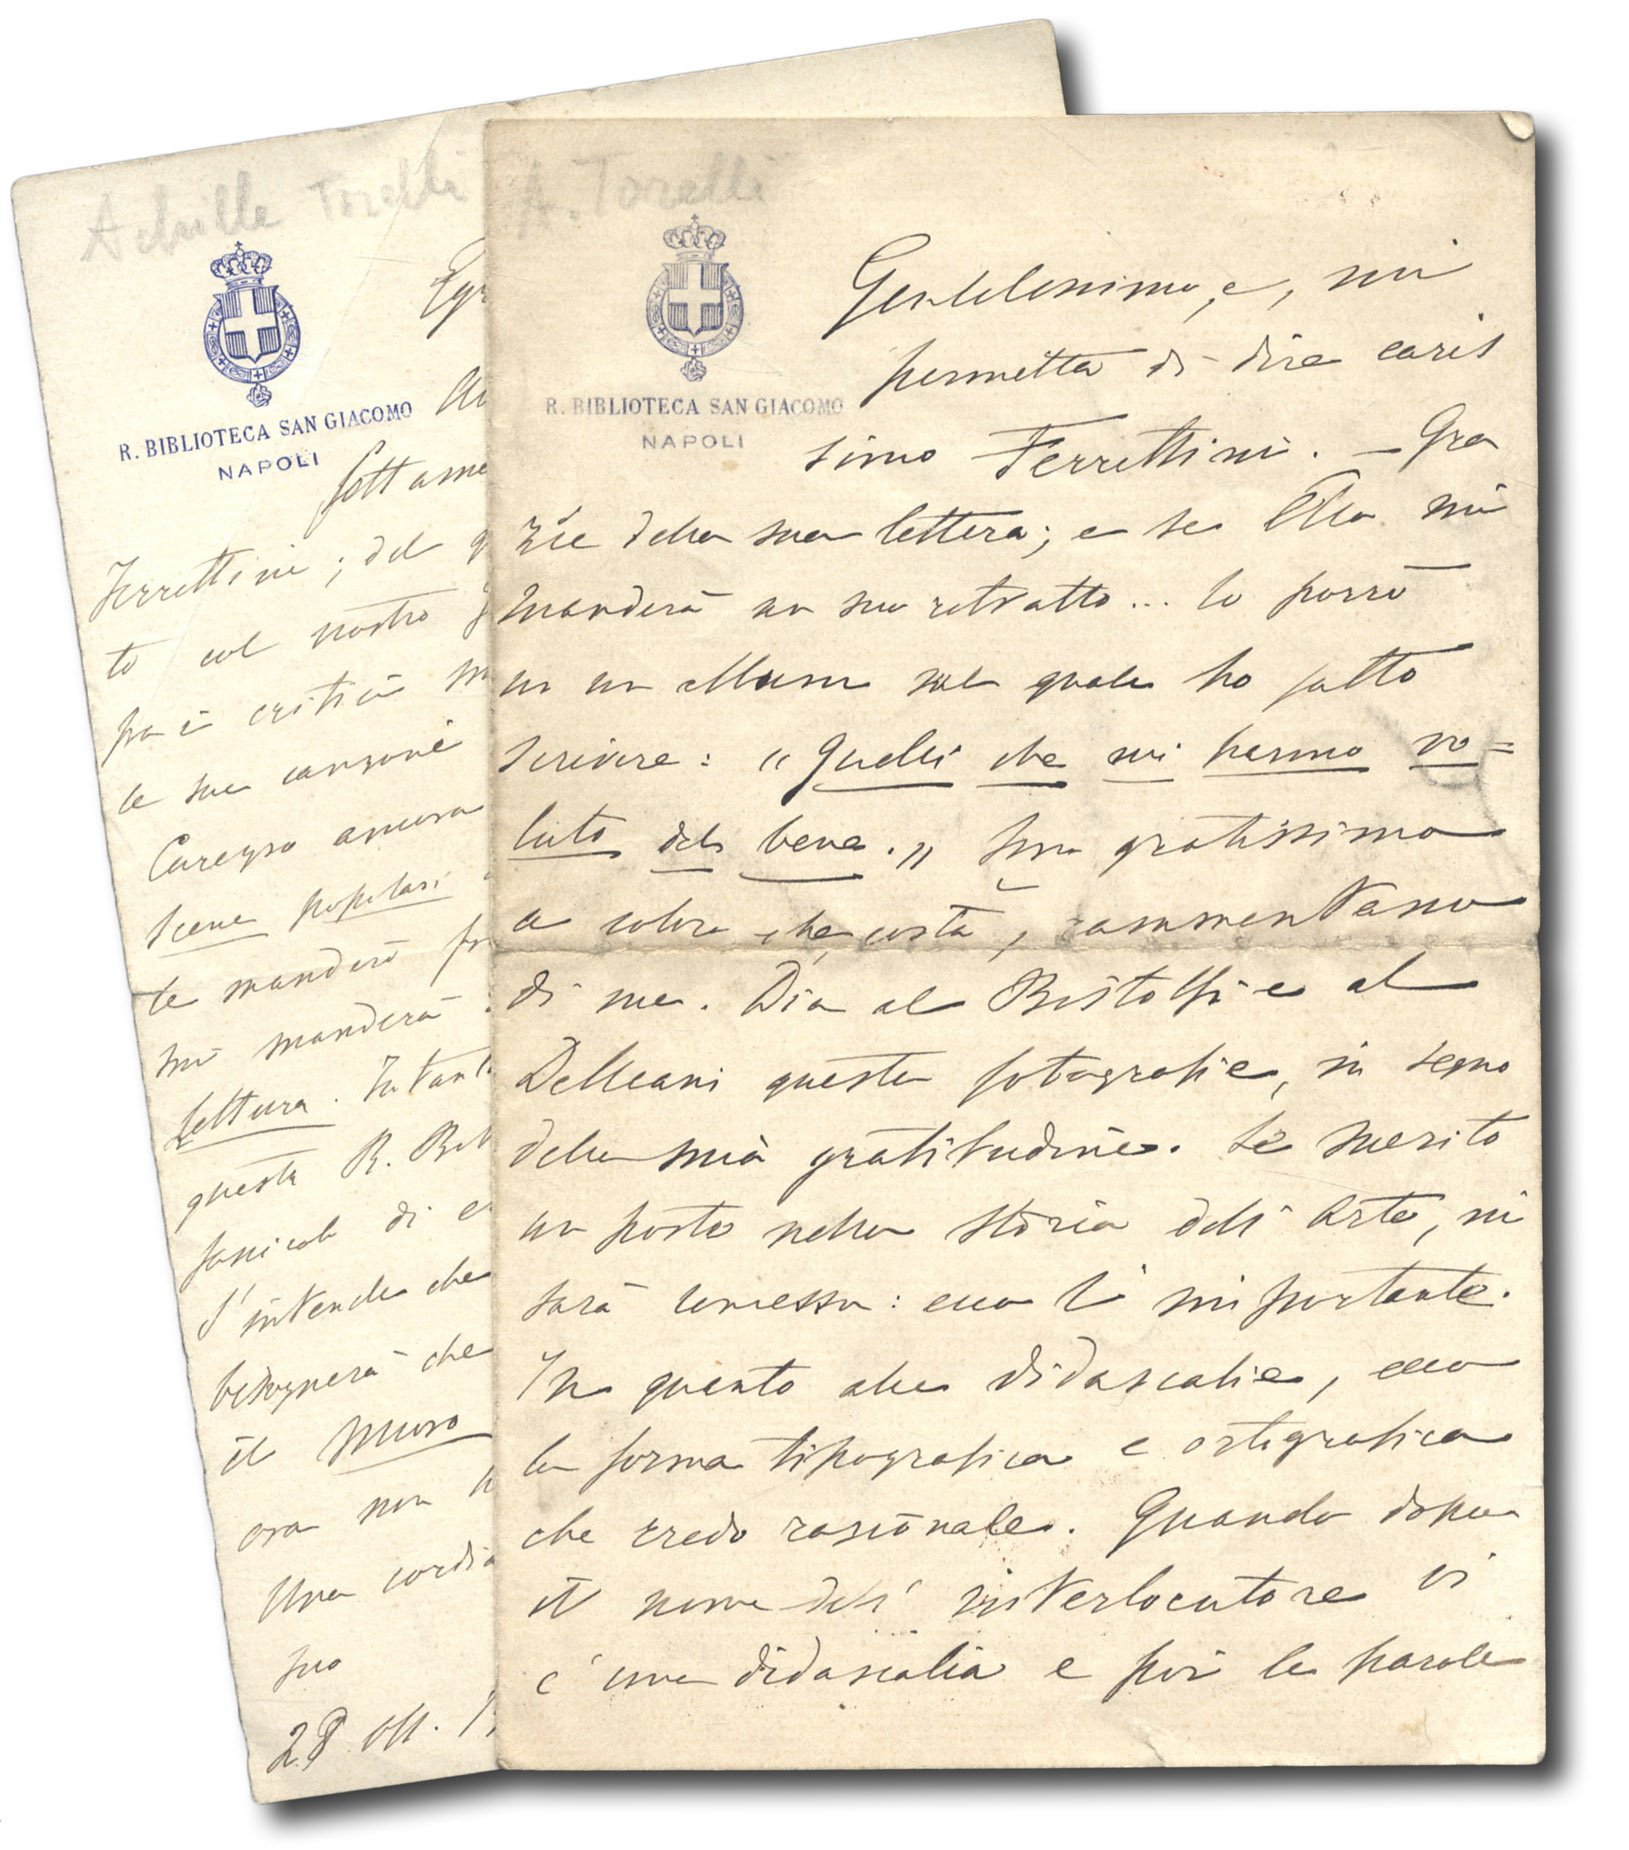 Achille Torelli
R. BIBLIOTECA SAN GIACOMO
NAPOLI
Egr
fott ame
Ferrettini; del
to col nostro
fra i critici
le sue canzoni
Caregso ancora
Scene popolari
te manderò
mi manderà
lettura. Intant
questa R. Bib
fascicolo di
S'intende che
bisognerà che
il Muro
ora non
Una cordia
suo
28 ott. 1
A. Torelli
R. BIBLIOTECA SAN GIACOMO
NAPOLI
Gentilissimo, e, mi
permetta di dire caris
simo Ferrettini. – Gra
zie della sua lettera; e se Ella mi
manderà un suo ritratto... lo porrò
in un album sul quale ho fatto
scrivere: "Quelli che mi hanno vo=
luto del bene." Son gratissimo
a coloro che, costà, rammentano
di me. Dia al Bistolfi e al
Delleani queste fotografie, in segno
della mia gratitudine. Se merito
un posto nella storia dell'Arte, mi
sarà concesso: ecco l'importante.
In quanto alle didascalie, ecco
la forma tipografica e ortografica
che credo razionale. Quando dopo
il nome dell'interlocutore vi
è una didascalia e poi le parole